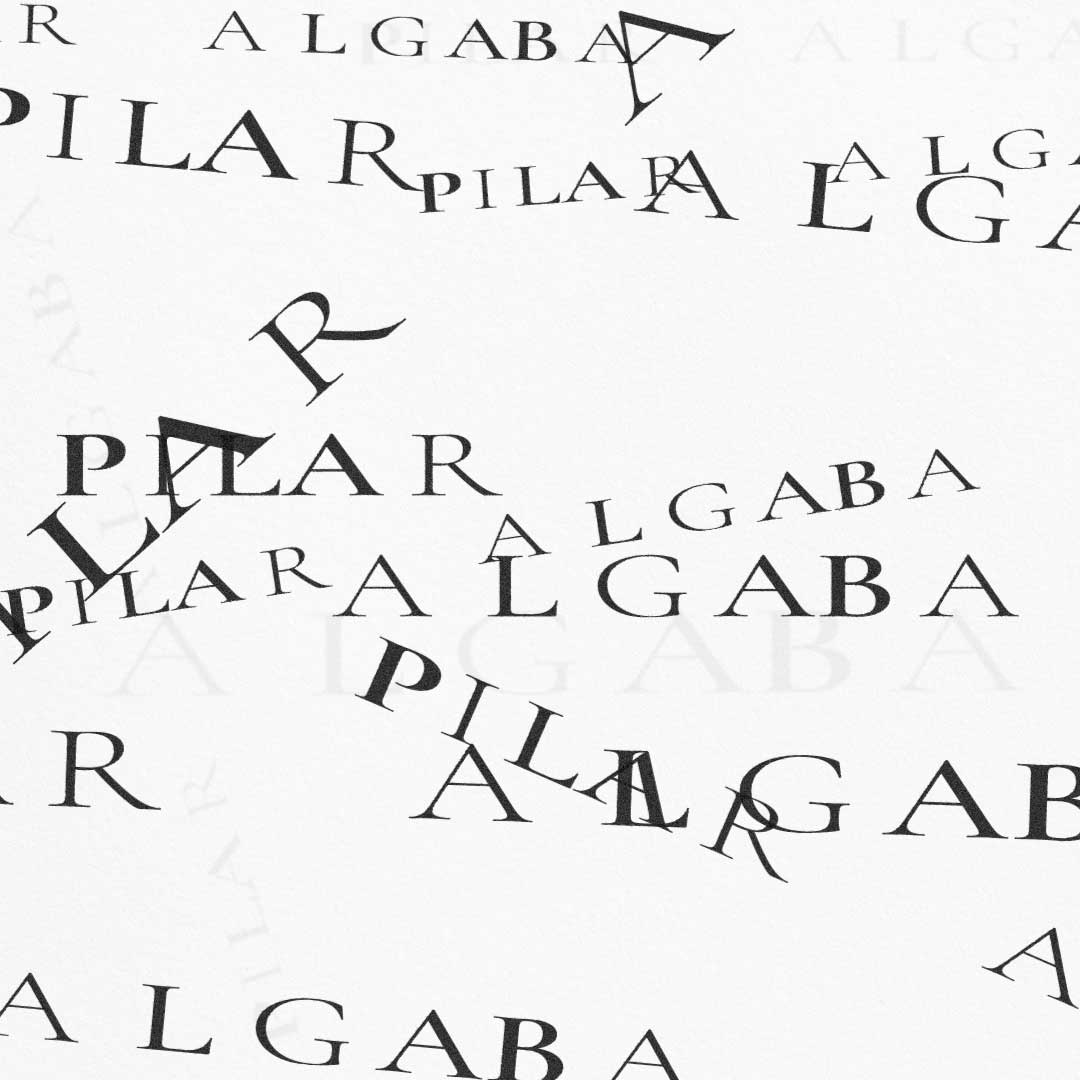 R ALGABA A
PILAR ALGA
PILAR ALGA
ALGABA
R
PILAR
LA
ALGABA
PILAR
ALGABA
ALGABA
PILAR
R ALGAB
PILAR
A
ALGABA